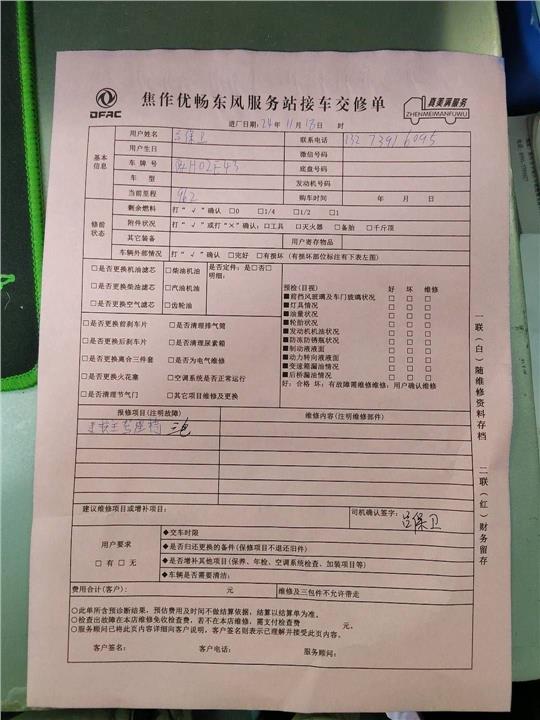 DFAC
焦作优畅东风服务站接车交修单
真美满服务
ZHENMEIMANFUWU
进厂日期:24年11月18日 时
基本信息
用户姓名 吕保卫 联系电话 132 7391 6095
用户生日 微信号码
车牌号 底盘号码
车型 发动机号码
当前里程 962 购车时间 年 月 日
修前状态
剩余燃料 打“√”确认 □0 □1/4 □1/2 □1
附件状况 打“√”或打“×”确认:□工具 □灭火器 □备胎 □千斤顶
其它装备 用户寄存物品
车辆外部情况 打“√”确认 □完好 □有损坏(有损坏部位标注有下表左图)
□是否更换机油滤芯 □柴油机油 是否定件:是□否□
明细:
□是否更换柴油滤芯 □汽油机油
□是否更换空气滤芯 □齿轮油
□是否更换前刹车片 □是否清理排气筒
□是否更换后刹车片 □是否清理尿素箱
□是否更换离合三件套 □是否为电气维修
□是否更换火花塞 □空调系统是否正常运行
□是否清理节气门 □其它项目维修及更换
预检(目视) 好 坏 维修
■前挡风玻璃及车门玻璃状况 □ □ □
■灯具情况 □ □ □
■油量状况 □ □ □
■轮胎状况 □ □ □
■发动机机油状况 □ □ □
■防冻防锈瓶状况 □ □ □
■制动液液面 □ □ □
■动力转向液液面 □ □ □
■变速箱漏油情况 □ □ □
■后桥漏油情况 □ □ □
好:合格 坏:有故障需维修维修:用户确认维修
报修项目(注明故障) 维修内容(注明维修部件)
建议维修项目或增补项目: 司机确认签字: 吕保卫
用户要求
□有 □无
◆交车时限
◆是否归还更换的备件(保修项目不退还旧件)
◆是否增补其他项目(保养、年检、空调系统检查、加装项目等)
◆车辆是否需要清洁:
费用合计(客户): 元 维修及三包件不允许带走
○此单所含预诊断结果,预估费用及时间不做结算依据,结算以结算单为准。
○检查出故障在本店维修免收检查费,若不在本店维修,需支付检查费 元。
○服务顾问已将此页内容详细向客户说明,客户签名则表示已理解并接受此页内容。
客户签名: 客户电话: 服务顾问:
一联(白)随维修资料存档 二联(红)财务留存